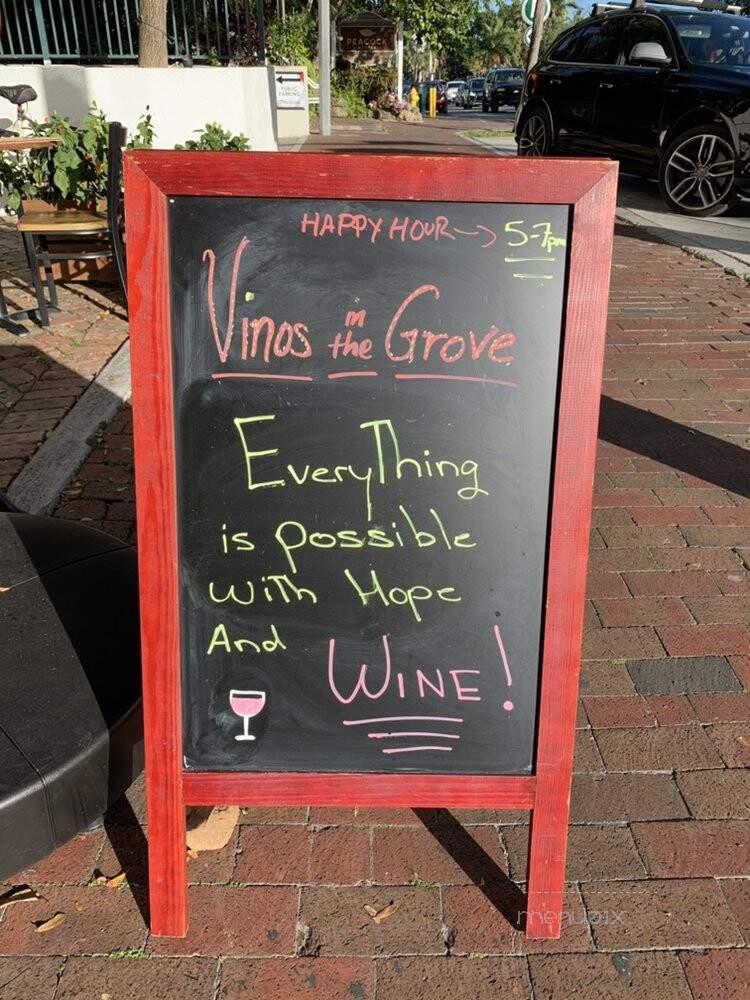 PEACOCK
PUBLIC
PARKING
HAPPY HOUR → 5-7pm
Vinos in the Grove
EveryThing
is possible
with Hope
And
WINE!
menupix